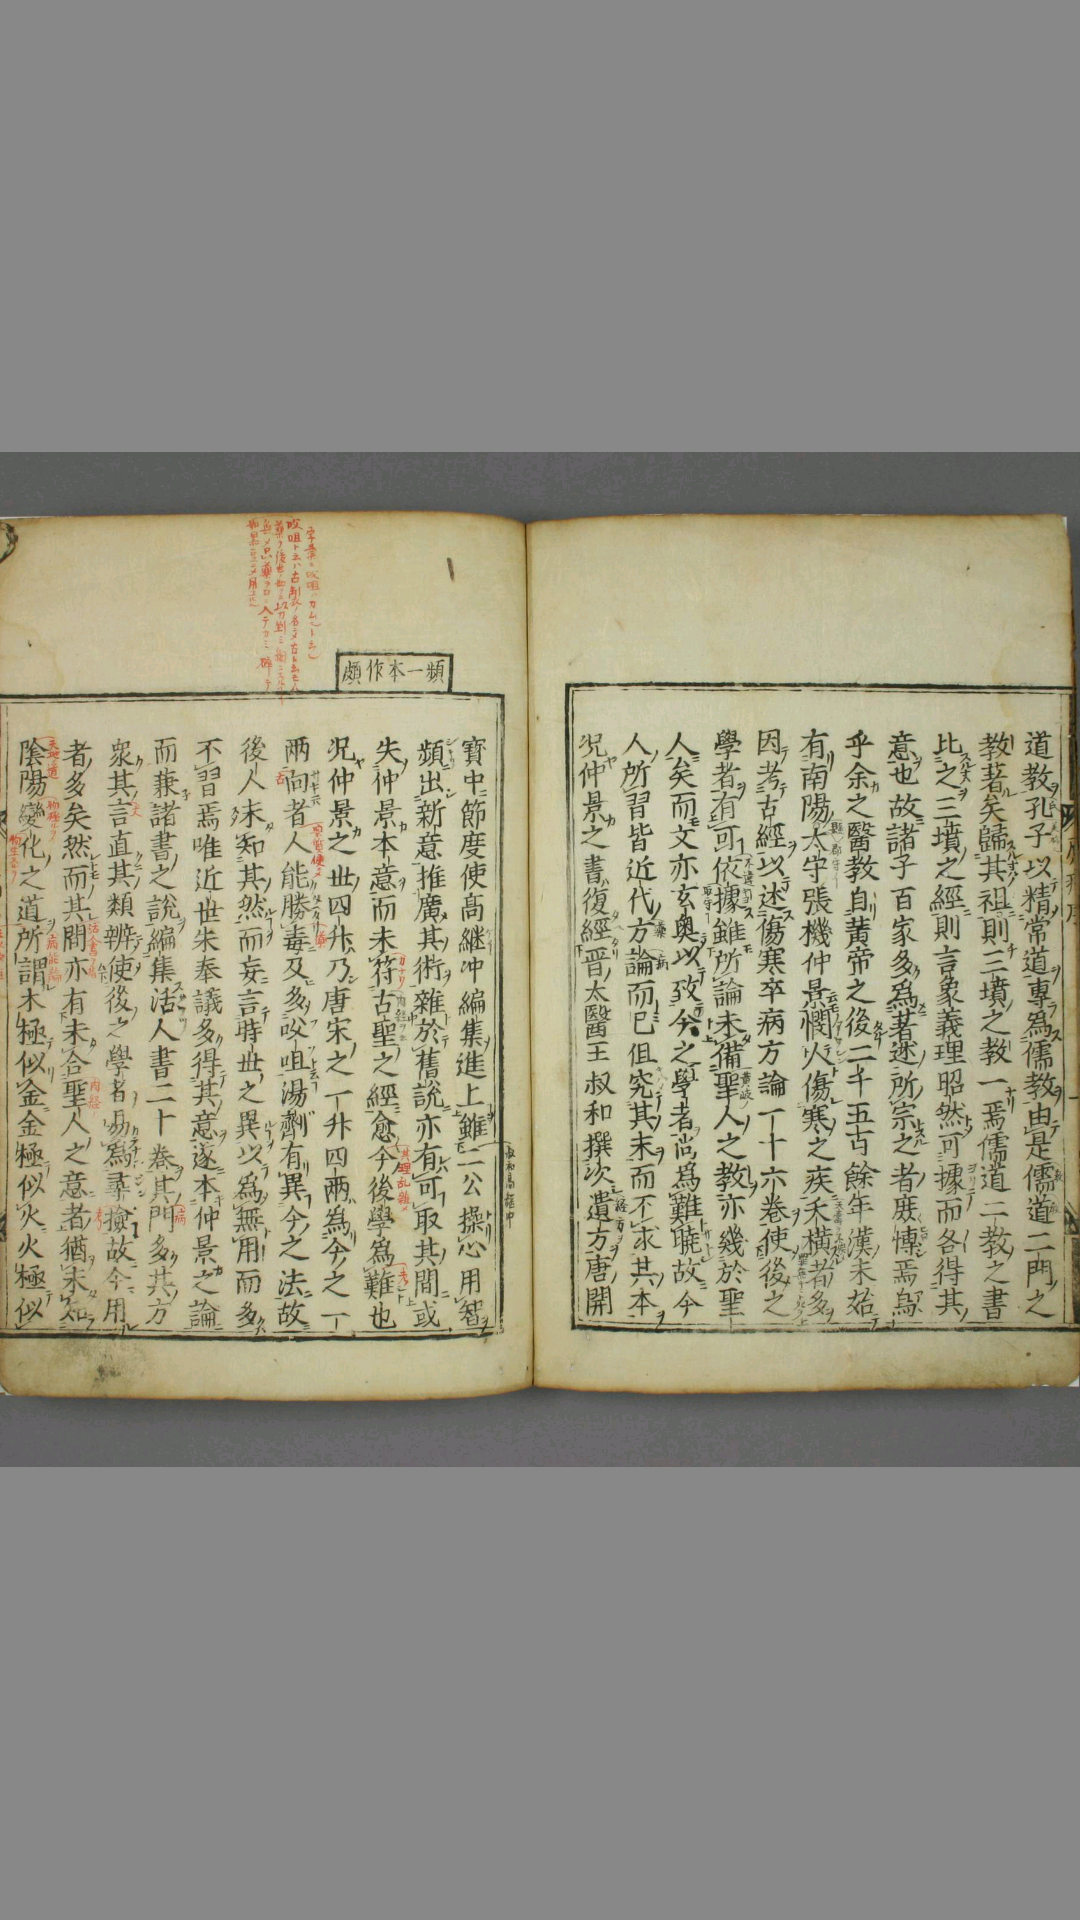 道教孔子以精常道專為儒教由是儒道二門之
教著矣歸其祖則三墳之教一焉儒道二教之書
比之三墳之經則言象義理昭然可據而各得其
意也故諸子百家多為著述所宗之者庶博焉鄔
乎余之醫教自黃帝之後二千五百餘年漢末始
有南陽太守張機仲景憫人傷寒之疾夭橫者多
因考古經以述傷寒卒病方論一十六卷使後之
學者有可依據雖所論未備聖人之教亦幾於聖
人矣而文亦玄奧以致今之學者尚為難曉故今
人所習皆近代方論而已但究其末而不求其本
況仲景之書復經晉太醫王叔和撰次遺方唐開
類一本作頗
寶中節度使高繼冲編集進上雖二公操心用智
頻出新意推廣其術雜於舊說亦有可取其間或
失仲景本意而未符古聖之經愈今後學為難也
況仲景之世四升乃唐宋之一升四兩為今之一
兩向者人能勝毒及多㕮咀湯劑有異今之法故
後人未知其然而妄言時世之異以為無用而多
不習焉唯近世朱奉議多得其意遂本仲景之論
而兼諸書之說編集活人書二十卷其門多其方
衆其言直其類辨使後之學者易為尋檢故今用
者多矣然而其間亦有未合聖人之意者猶未知
陰陽變化之道所謂木極似金金極似火火極似